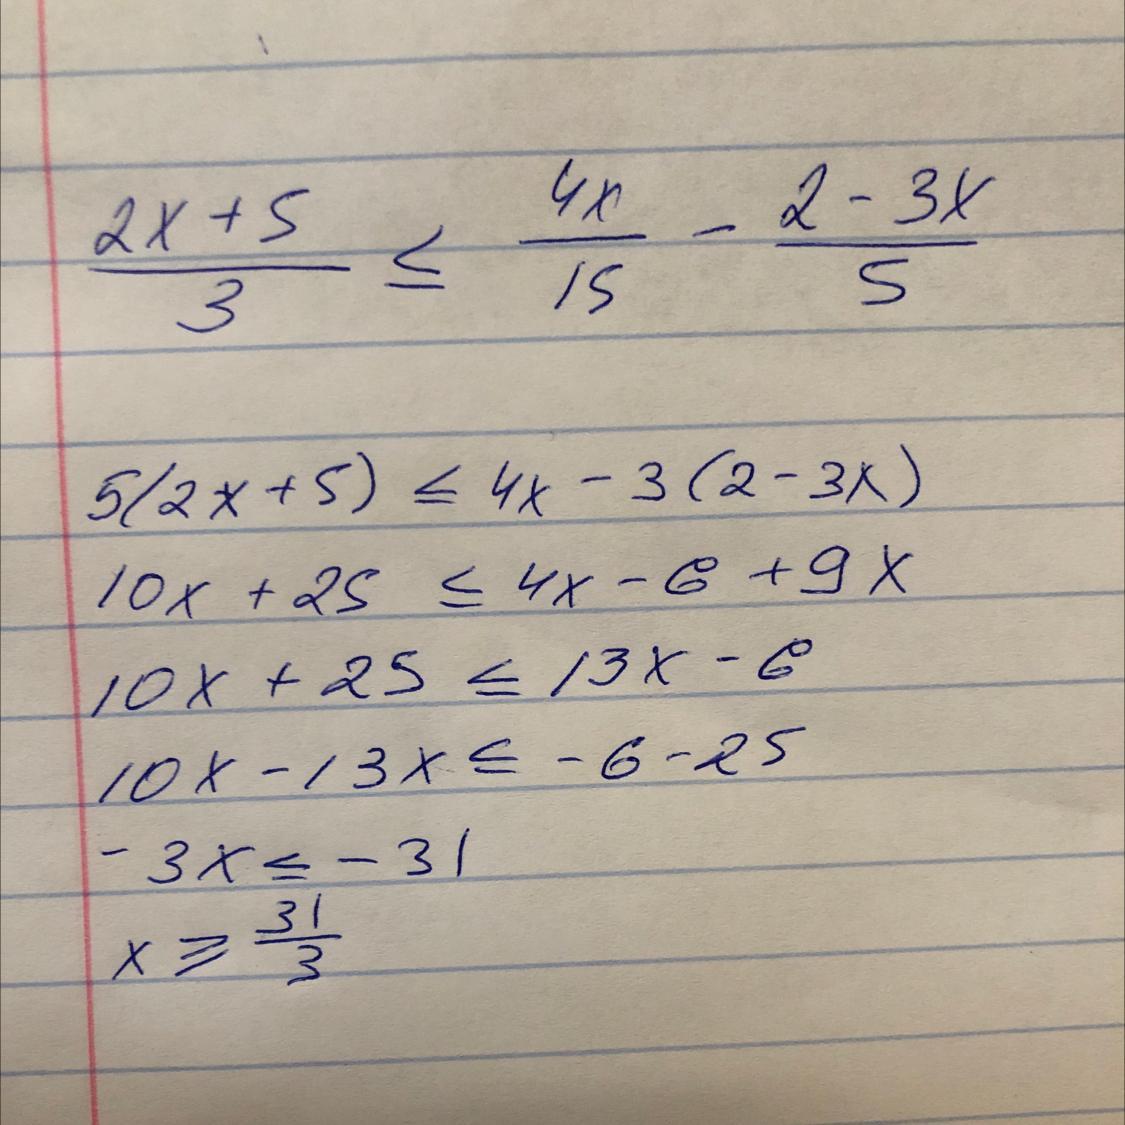 (2x+5)/3 ≤ 4x/15 - (2-3x)/5
5(2x+5) ≤ 4x - 3(2-3x)
10x + 25 ≤ 4x - 6 + 9x
10x + 25 ≤ 13x - 6
10x - 13x ≤ -6 - 25
-3x ≤ -31
x ≥ 31/3